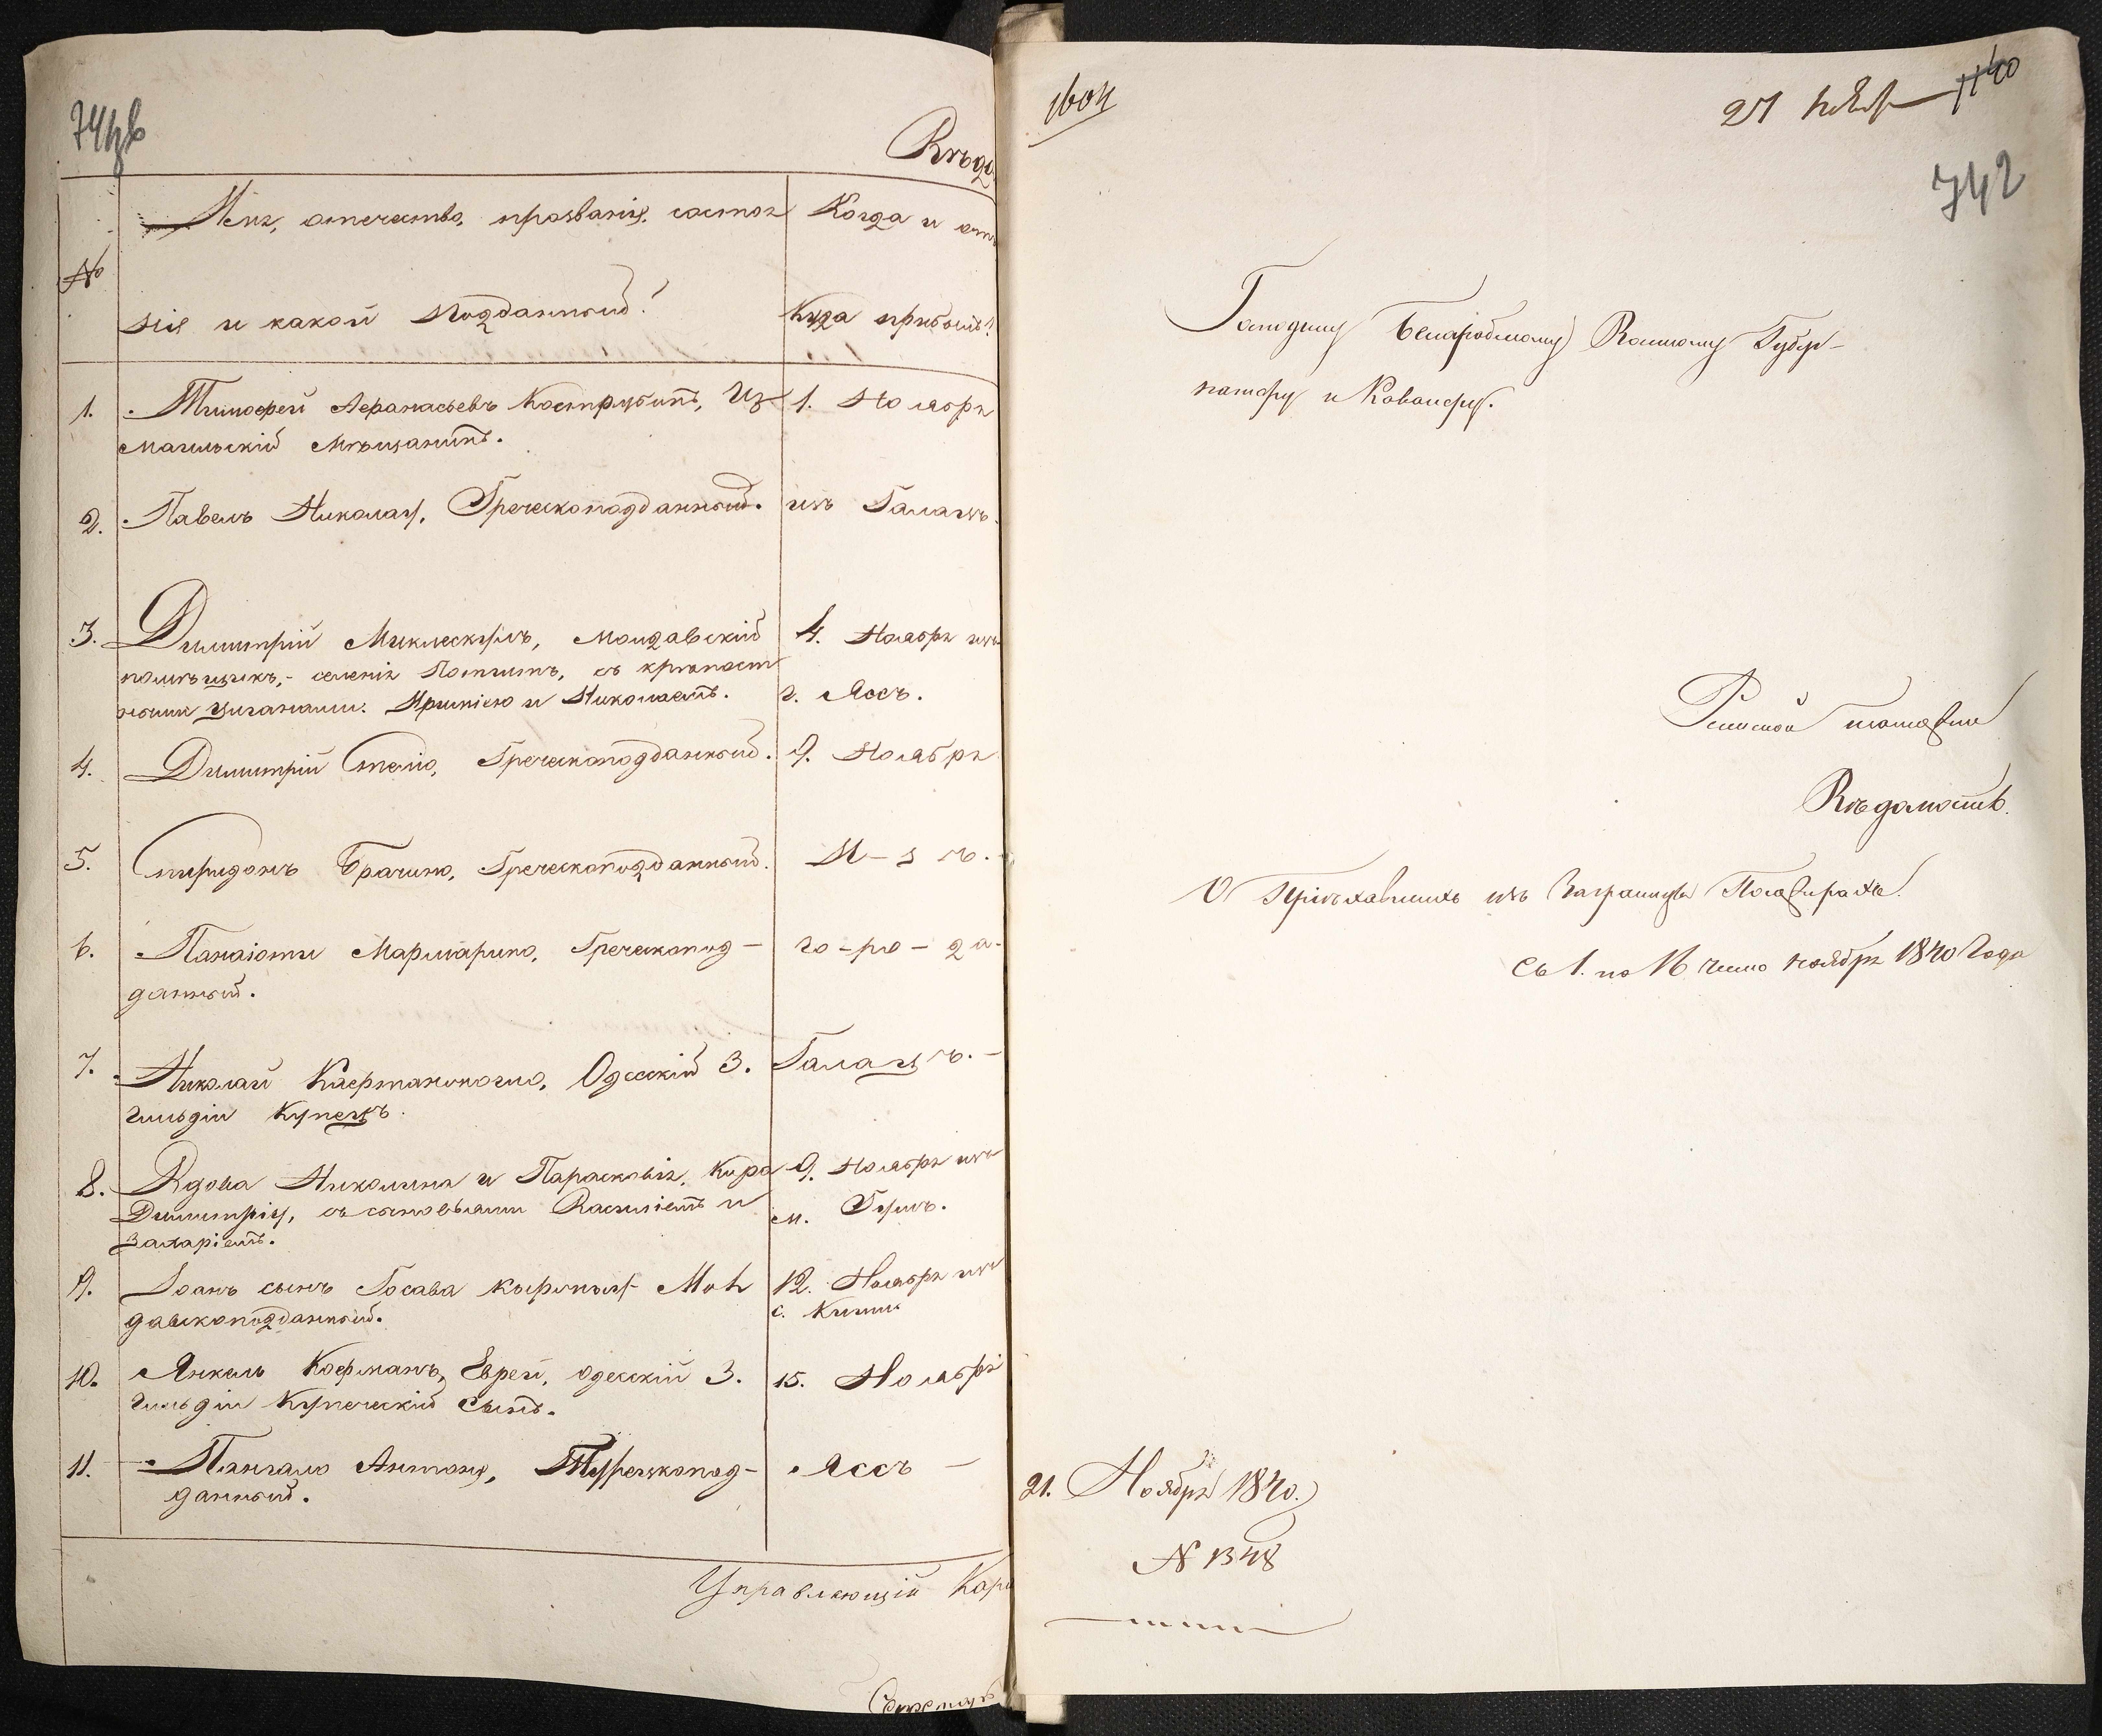 Вѣдо
№
Имя, отечество, прозваніе, состоя
ніе и какой подданный?
Когда и от
куда прибылъ?
1. Тимофей Афанасьевъ Кострубинъ, Из
маильскій мѣщанинъ.
1. Ноября
2. Павелъ Николау, Греческоподданный.
изъ Галацъ.
3. Димитрій Миклескулъ, Молдавскій
помѣщикъ, - селенія , съ крѣпост
ными цыганами. Ириніею и Николаемъ.
4. Ноября изъ
г. Яссъ.
4. Димитрій Стеліо, Греческоподданный.
9. Ноября
5. Спиридонъ Брачино, Греческоподданный.
И - з ъ. -
6. Панаіоти Мармарино, Греческопод-
данный.
го - ро - да -
7. Николай Кафтанокогло, Одесскій 3.
гильдіи Купецъ.
Галацъ. -
8. Вдова Николина и Параскевія, Киро
Димитріу, съ сыновьями Василіемъ и
Захаріемъ.
9. Ноября изъ
м. Формъ.
9. Іоанъ сынъ Мол
давскоподданный.
12. Ноября изъ
с.
10. Янкель Кофманъ, Еврей, одесскій 3.
гильдіи Купеческій Сынъ.
15. Ноября
11. Пангало Антону, Турецкопод-
данный.
Яссъ -
Управляющій Кар
1604
27 ноябр 40
742
Господину Бессарабскому Военному Губер-
натору и Кавалеру.
Ренской таможни
Вѣдомость.
О пріѣхавшихъ изъ Заграницы Пасажирахъ.
Съ 1. по 16 число ноября 1840 Года
21. Ноября 1840.
N 1348